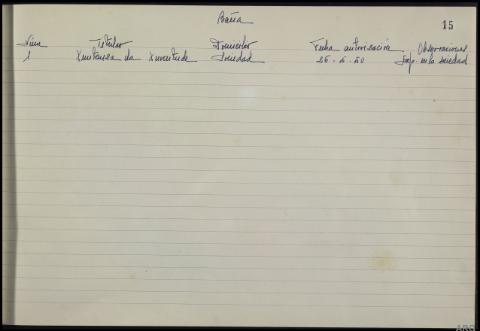 Baña
15
Núm Titular Domicilio Fecha autorización Observaciones
1 Xuntanza da Xuventude Soedad 26-6-80